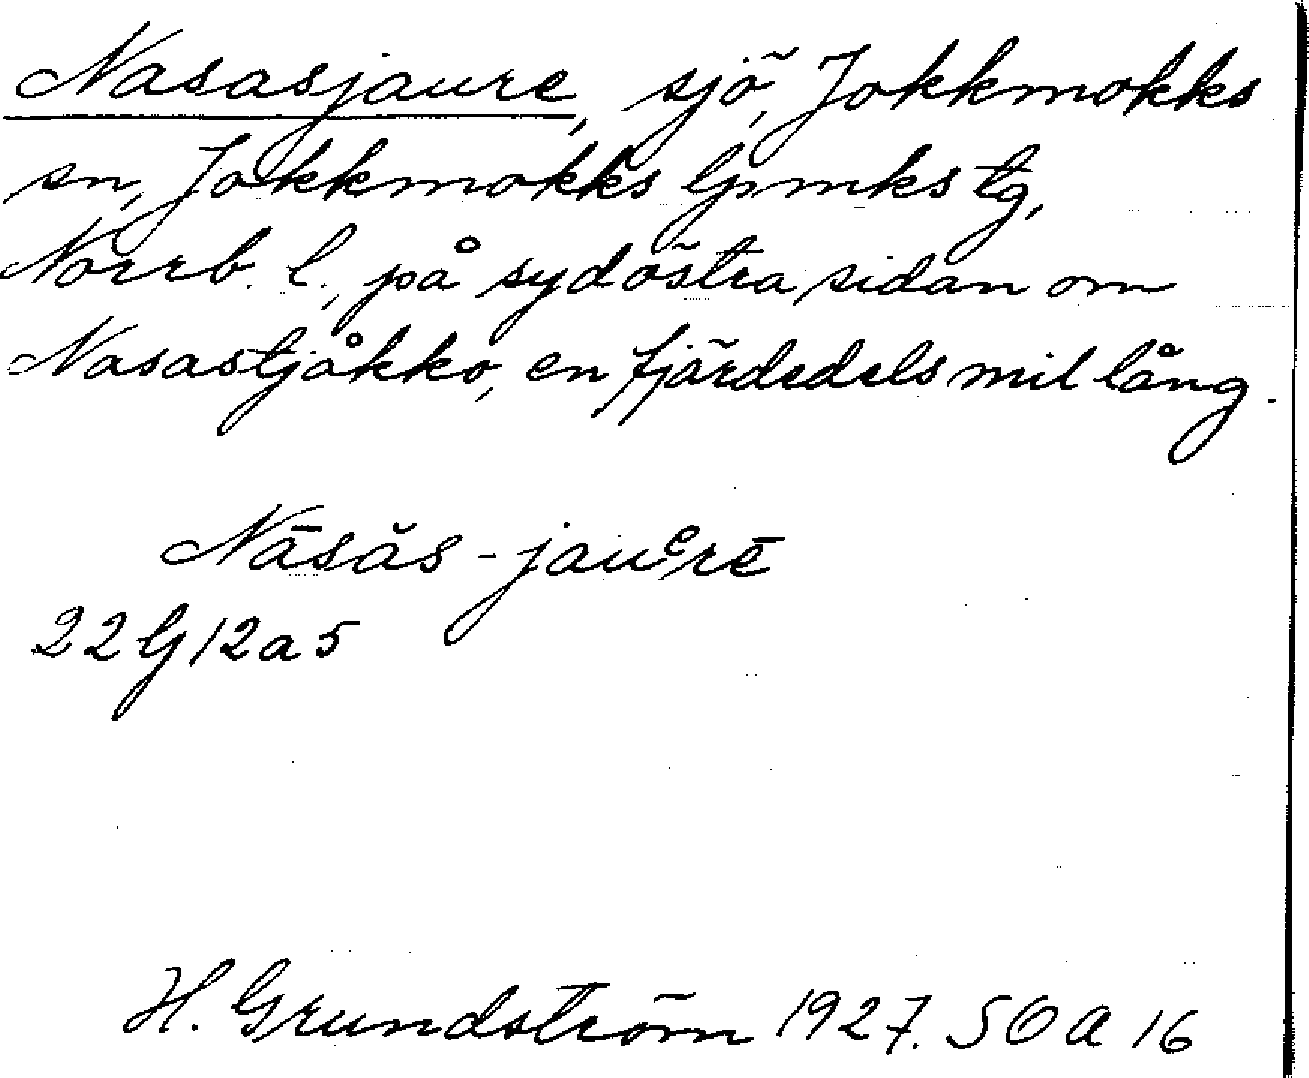 Nasasjaure, sjö, Jokkmokks
sn, Jokkmokks lpmks tg,
Norrb. l., på sydöstra sidan om
Nasastjåkko, en fjärdedels mil lång.
Nāsăs-jauᵉrē
22G12a5
H. Grundström 1927. SOA 16